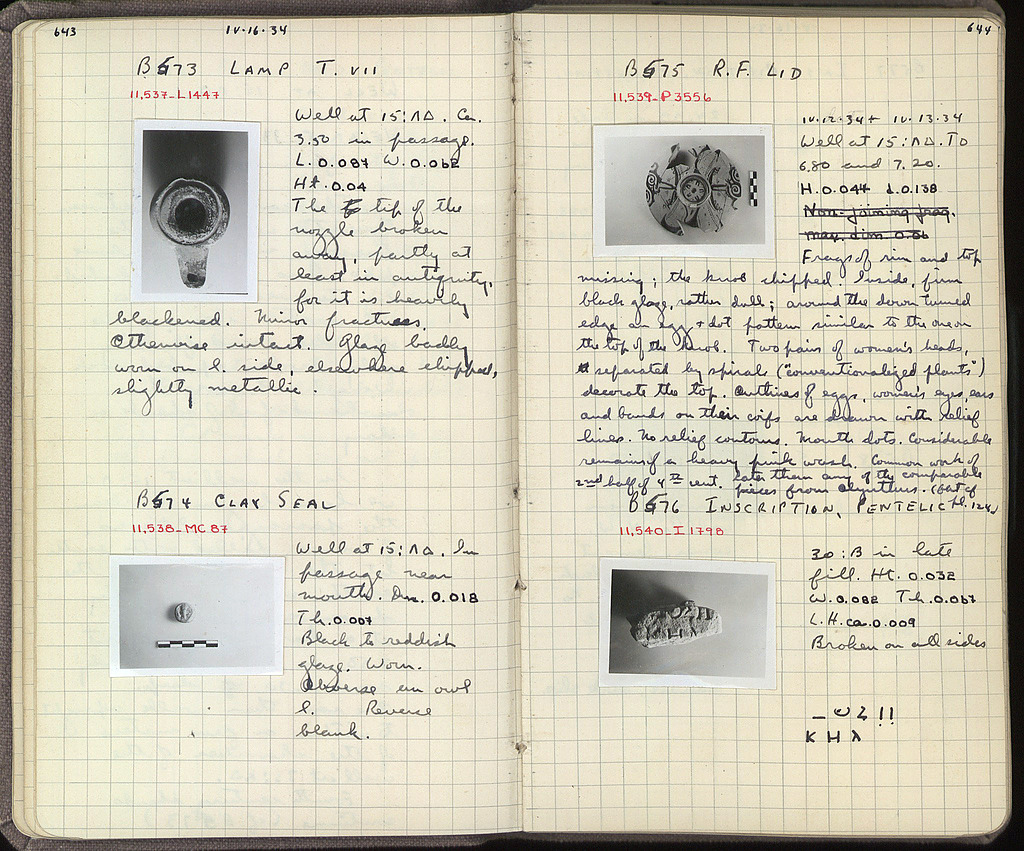 643
IV-16-34
B 573 LAMP T. VII
11,537-L1447
Well at 15:ΛΔ. Ca.
3.50 in passage.
L. 0.087 W. 0.062
Ht. 0.04
The tip of the
nozzle broken
away, partly at
least in antiquity,
for it is heavily
blackened. Minor fractures.
Otherwise intact. Glaze badly
worn on l. side, elsewhere chipped,
slightly metallic.
B 574 CLAY SEAL
11,538-MC 87
Well at 15:ΛΔ. In
passage near
mouth. Dm. 0.018
Th. 0.007
Black to reddish
glaze. Worn.
Obverse an owl
l. Reverse
blank.
644
B 575 R.F. LID
11,539-P 3556
IV-12-34 + IV-13-34
Well at 15:ΛΔ. To
6.80 and 7.20.
H. 0.044 d. 0.138
Non-joining frag.
max. dim. 0.06
Frags of rim and top
missing; the knob chipped. Inside, firm
black glaze, rather dull; around the down turned
edge an egg + dot pattern similar to the one on
the top of the knob. Two pairs of women's heads,
separated by spirals ("conventionalized plants")
decorate the top. Outlines of eggs, women's eyes, ears
and bands on their coifs are drawn with relief
lines. No relief contours. Mouth dots. Considerable
remains of a heavy pink wash. Common work of
2nd half of 4th cent. later than any of the comparable
pieces from Olynthus.
B 576 INSCRIPTION, PENTELIC
11,540-I 1798
30:B in late
fill. Ht. 0.032
W. 0.082 Th. 0.067
L.H. ca. 0.009
Broken on all sides
Κ Η λ